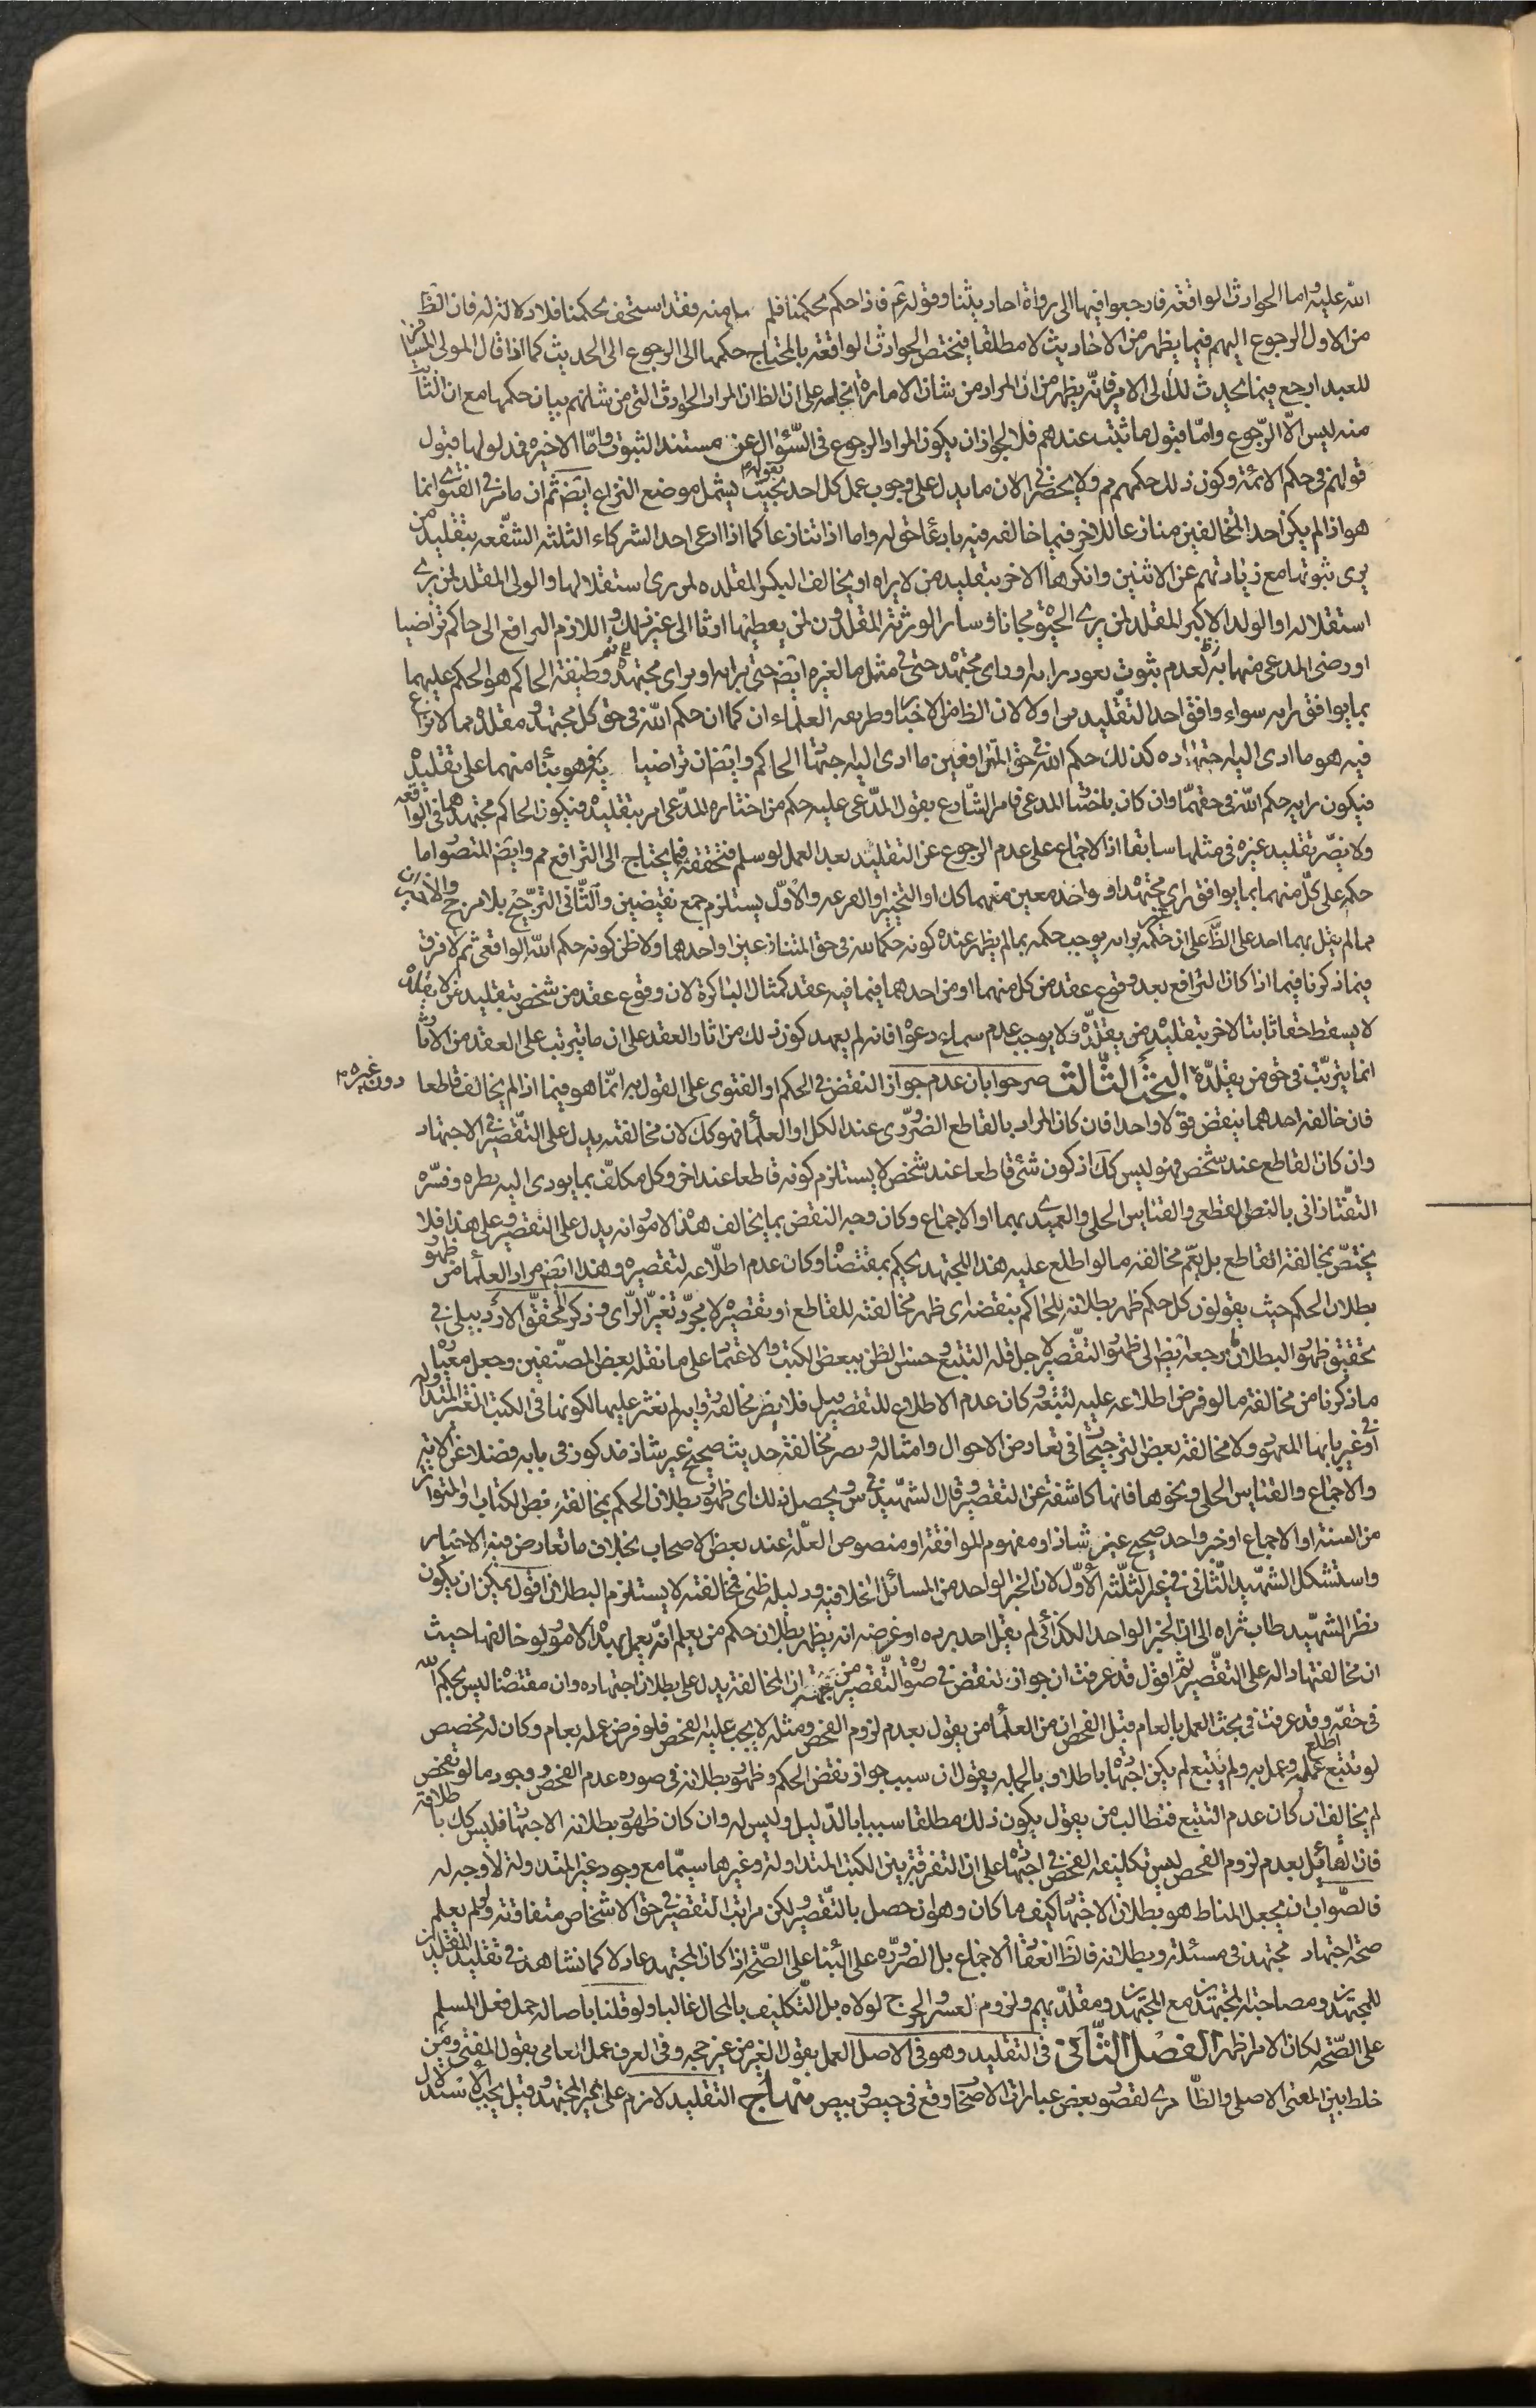 الله عليه واما الحوادث الواقعة فارجعوا فيها الى رواة احاديثنا وقوله عم فاذا حكم بحكمنا فلم منه فقد استخف بحكمنا فلا دلالة له فان الظ
من الاول الرجوع اليهم فيما يظهر من الاخاديث لا مطلقا فيختص الحوادث الواقعة بالمحتاج حكمها الى الرجوع الى الحديث كما اذا قال المولى
للعبد ارجع فيما يحدث لك الى الامير فانه يظهر من ان المراد من شان الامارة انجاحه على ان الظ ان المراد الحوادث التى من شانهم بيان حكمها مع ان الثا
منه ليس الا الرجوع واما قبول ما ثبت عندهم فلا لجواز ان يكون المراد الرجوع فى السؤال عن مستند الثبوت واما الاخيره فمدلولها قبول
قولهم فى حكم الائمة وكون ذلك حكمهم مم ولا يحضرنى الان ما يدل على وجوب عمل كل احد بقوله بحيث يشمل موضع النزاع ايض ثم ان ما مر فى الفتوى انما
هو اذا لم يكن احد المتخالفين منازعا للاخر فيما خالفه فيه بادعا حق له واما اذا تنازعا كما اذا ادعى احد الشركاء الثلثة الشفعه بتقليد من
يرى ثبوتها مع زيادتهم عن الاثنين وانكرها الاخر بتقليد من لا يراه او يخالف البكر المقلده لمن يرى استقلالها والولى المقلد لمن يرى
استقلاله او الولد الاكبر المقلد لمن يرى الحبوة مجانا وسائر الورثة المقلدون لمن يعطيها ارثا الى غير ذلك واللازم الترافع الى حاكم تراضيا
او رضى المدعى منهما به لعدم ثبوت نفوذ رايه او راى مجتهده حتى فى مثل ما لغيره ايض حتى برايه او براى مجتهده ثم وظيفة الحاكم هو الحكم عليهما
بما يوافق رايه سواء وافق احد التقليدين اولا لان الظ من الاخبار وطريقه العلماء ان كما ان حكم الله فى حق كل مجتهد ومقلده مما لا نزاع
فيه هو ما ادى اليه اجتهاده كذلك حكم الله فى حق المترافعين ما ادى اليه اجتهاد الحاكم وايض ان تراضيا به فهو بنا منهما على تقليده
فيكون رايه حكم الله فى حقهما وان كان باختيار المدعى فامر الشارع بقول المدعى عليه حكم من اختاره المدعى امر بتقليده فيكون الحاكم مجتهدهما فى الواقعه
ولا يضر تقليد غيره فى مثلها سابقا اذ الاجماع على عدم الرجوع عن التقليد بعد العمل لو سلم فتحققه فيما يحتاج الى الترافع مم وايض المتصور اما
حكمه على كل منهما بما يوافق راى مجتهده او واحد معين منهما كك او التخيير او القرعه والاول يستلزم جمع نقيضين والثانى الترجيح بلا مرجح والاخيران
مما لم يقل بهما احد على الظ على ان حكمه بغير رايه يوجب حكمه بما لم يظهر عنده كونه حكما لله فى حق المتنازعين او احدهما ولا ظن كونه حكم الله الواقعى ثم لا فرق
فيما ذكرنا فيما اذا كان الترافع بعد وقوع عقد من كل منهما او من احدهما فيما فيه عقد كمثال الباكرة لان وقوع عقد من شخص بتقليد من لا يقلده
لا يسقط حقا ثابتا لاخر بتقليده من يقلده ولا يوجب عدم سماع دعواه فانه لم يعهد كون ذلك من اثار العقد على ان ما يترتب على العقد من الاثار
انما يترتب فى حق من يقلده البحث الثالث صرحوا بان عدم جواز النقض فى الحكم او الفتوى على القول به انما هو فيما اذا لم يخالف قاطعا دون غيره م
فان خالفه احدهما ينقض قولا واحدا فان كان المراد بالقاطع الضرورى عند الكل او العلماء فهو كك لان مخالفته يدل على التقصير فى الاجتهاد
وان كان القاطع عند شخص فهو ليس كك اذ كون شئ قاطعا عند شخص لا يستلزم كونه قاطعا عند اخر وكل مكلف بما يودى اليه نظره وفسره
التفتازانى بالنص القطعى والقياس الجلى والعميدى بهما او الاجماع وكان وجه النقض بما يخالف هذه الامور انه يدل على التقصير وعلى هذا فلا
يختص بمخالفة القاطع بل يعم مخالفة ما لو اطلع عليه هذا المجتهد يحكم بمقتضاه وكان عدم اطلاعه لتقصيره وهذا ايض مراد العلماء من ظهور
بطلان الحكم حيث يقولون كل حكم ظهر بطلانه للحاكم ينقضه اى ظهر مخالفته للقاطع او تقصيره لا مجرد تغير الراى وذكر المحقق الاردبيلى فى
تحقيق ظهور البطلان ما مرجعه ايض الى ظهور التقصير لاجل قلة التتبع وحسن الظن ببعض الكتب والاعتماد على ما نقله بعض المصنفين وجعل معياره
ما ذكرنا من مخالفة ما لو فرض اطلاعه عليه لتتبعه وكان عدم الاطلاع للتقصير قيل فلا يضر مخالفة رواية لم نعثر عليها لكونها فى الكتب الغير المتداوله
او فى غير بابها المعهود ولا مخالفة بعض الترجيحات فى تعارض الاحوال وامثاله ويضر مخالفة حديث صحيح غير شاذ مذكور فى بابه فضلا عن الاية
والاجماع والقياس الجلى ونحوها فانها كاشفة عن التقصير وقال الشهيد فى س ويحصل ذلك اى ظهور بطلان الحكم بمخالفة نص الكتاب او المتواتر
من السنة او الاجماع او خبر واحد صحيح غير شاذ او مفهوم الموافقة او منصوص العلة عند بعض الاصحاب بخلاف ما تعارض فيه الاخبار
واستشكل الشهيد الثانى فى غير الثلثة الاول لان الخبر الواحد من المسائل الخلافيه ودليله ظنى فمخالفته لا يستلزم البطلان اقول يمكن ان يكون
نظر الشهيد طاب ثراه الى ان الخبر الواحد الكذائى لم يقل احد برده او غرضه انه يظهر بطلان حكم من يعلم انه يعمل بهذه الامور لو خالفها حيث
ان مخالفتها دالة على التقصير ثم اقول قد عرفت ان جواز النقض فى صورة التقصير من جهة ان المخالفة يدل على بطلان اجتهاده وان مقتضاه ليس بحكم الله
فى حقه وقد عرفت فى بحث العمل بالعام قبل الفحص ان من العلماء من يقول بعدم لزوم الفحص ومثله لا يجب عليه الفحص فلو فرض عمله بعام وكان له مخصص
لو تتبع اطلع عليه وعمل به ولم يتتبع لم يكن اجتهاده باطلا وبالجملة يقول ان سبب جواز نقض الحكم وظهور بطلانه فى صورة عدم الفحص ووجود ما لو تفحص
لم يخالف ان كان عدم التتبع فنطالب من يقول بكون ذلك مطلقا سببا بالدليل وليس له وان كان ظهور بطلان الاجتهاد فليس كك باطلاقه
فان القائل بعدم لزوم الفحص ليس تكليفه الفحص فى اجتهاده على ان التفرقة بين الكتب المتداولة وغيرها سيما مع وجود غير المتداولة لا وجه له
فالصواب ان يجعل المناط هو بطلان الاجتهاد كيف ما كان وهو ان حصل بالتقصير ولكن مراتب التقصير فى حق الاشخاص متفاوتة ولو لم يعلم
صحة اجتهاد مجتهد فى مسئلة وبطلانه فالظ انعقاد الاجماع بل الضروره على البناء على الصحة اذا كان المجتهد عادلا كما نشاهد فى تقليد المقلدين
للمجتهدين ومصاحبة المجتهدين مع المجتهدين ومقلديهم ولزوم العسر والحرج لولاه بل التكليف بالمحال غالبا ولو قلنا باصالة حمل فعل المسلم
على الصحة لكان الامر اظهر الفصل الثانى فى التقليد وهو فى الاصل العمل بقول الغير من غير حجه وفى العرف عمل العامى بقول المفتى ومن
خلط بين المعنى الاصلى والطارى لقصور بعض عبارات الاصحاب وقع فى حيص وبيص منهاج التقليد لازم على غير المجتهد وقيل يجب الاستدلال